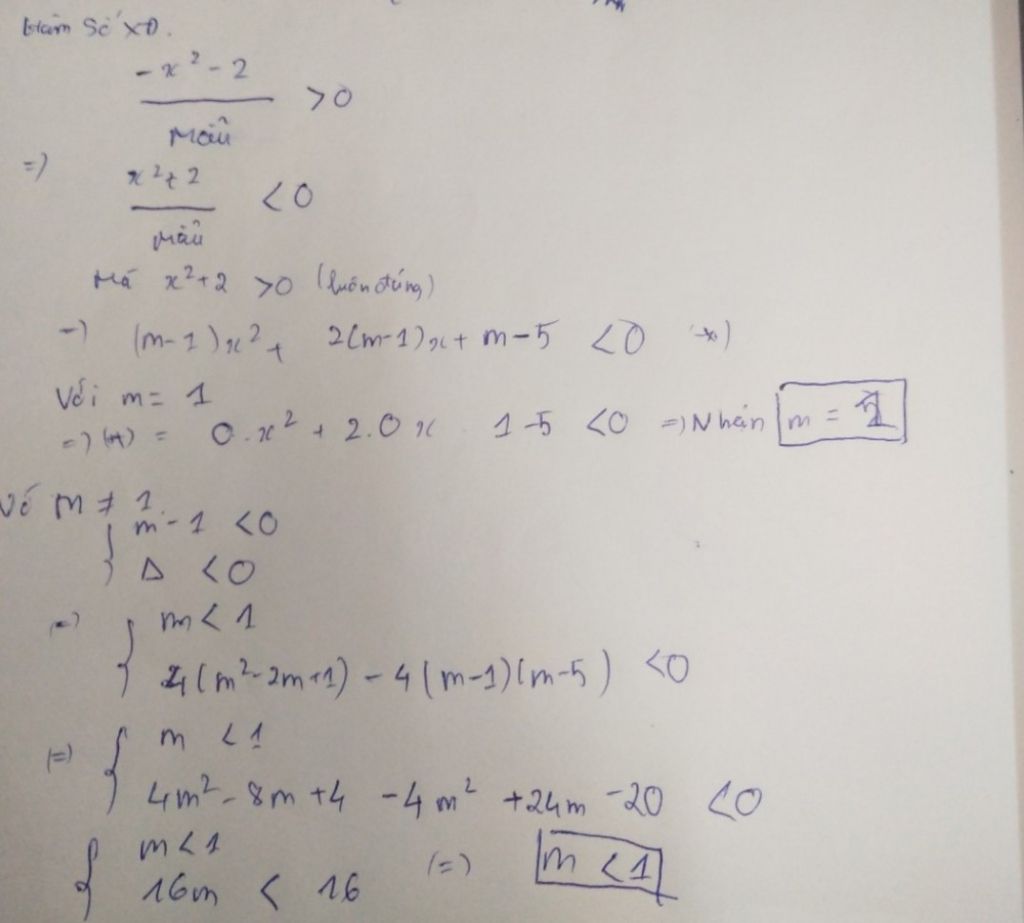 Hàm số XĐ.
-x² - 2
Mẫu
> 0
=)
x² + 2
Mẫu
< 0
Mà x² + 2 > 0 (luôn đúng)
=) (m-1)x² + 2(m-1)x + m-5 < 0 (*)
Với m = 1
=) (*) = 0.x² + 2.0x 1-5 < 0 =) Nhận m = 1
Với m ≠ 1
{ m-1 < 0
Δ < 0
(=) { m < 1
4(m²-2m+1) - 4(m-1)(m-5) < 0
(=) { m < 1
4m² - 8m + 4 - 4m² + 24m - 20 < 0
{ m < 1
16m < 16 (=) m < 1